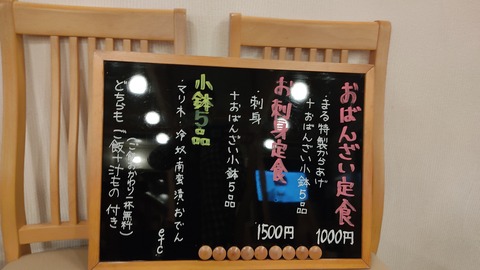 おばんざい定食
・まる特製からあげ
+おばんざい小鉢5品
1000円
お刺身定食
・刺身
+おばんざい小鉢5品
1500円
小鉢5品
・マリネ・冷奴・南蛮漬・おでん
etc
(ご飯おかわり一杯無料)
どちらも ご飯+汁もの 付き